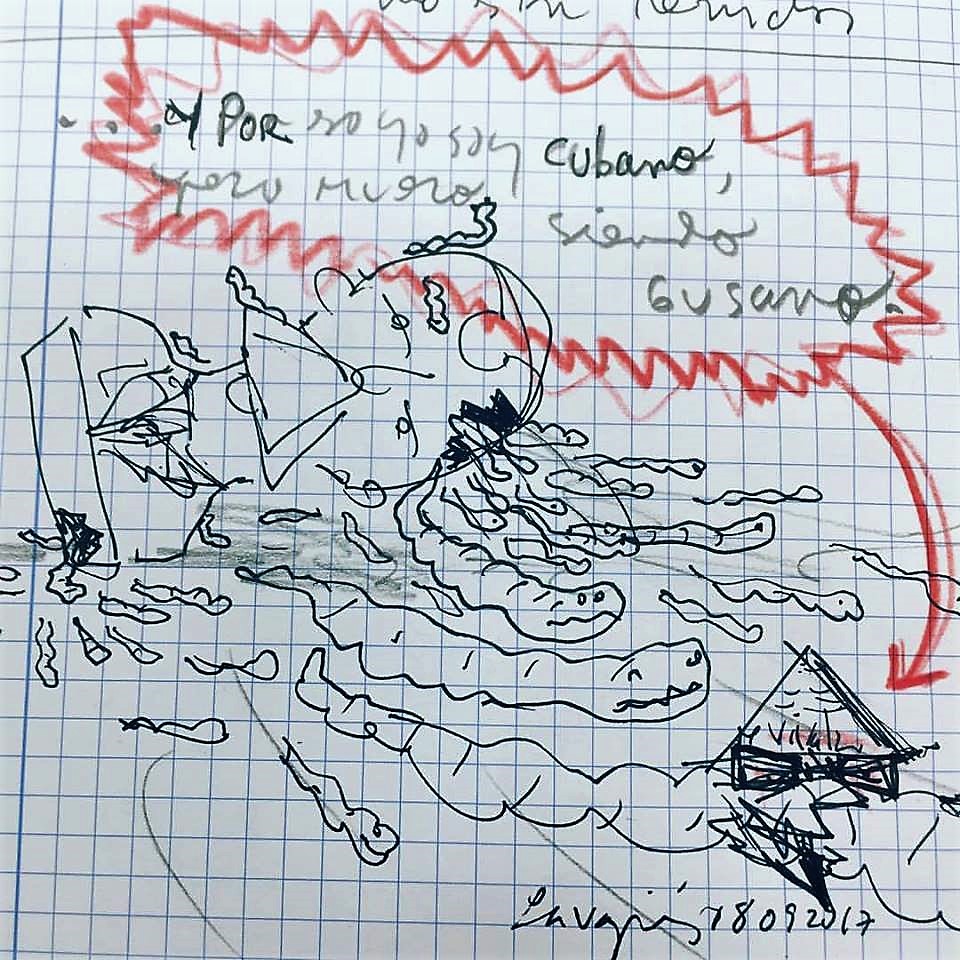 sin
...Y POR so yo soy cubano,
pero muero, siendo
Gusano.
Lavapiés 18 09 2017